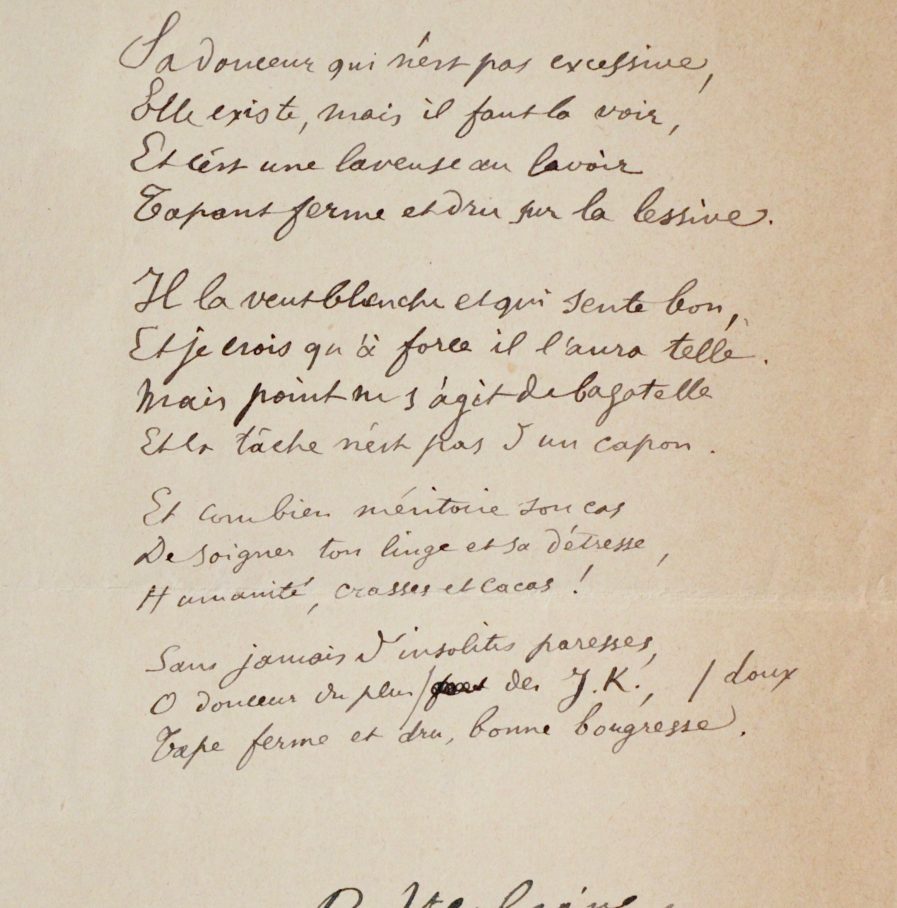 Sa douceur qui n'est pas excessive,
Elle existe, mais il faut la voir,
Et c'est une laveuse au lavoir
Tapant ferme et dru sur la lessive.
Il la veut blanche et qui sente bon,
Et je crois qu'à force il l'aura telle.
Mais point ne s'agit de bagatelle
Et la tâche n'est pas d'un capon.
Et combien méritoire son cas
De soigner ton linge et sa détresse,
Humanité, crasses et cacas !
Sans jamais d'insolites paresses,
O douceur du plus / des J.K., / doux
Tape ferme et dru, bonne bougresse.